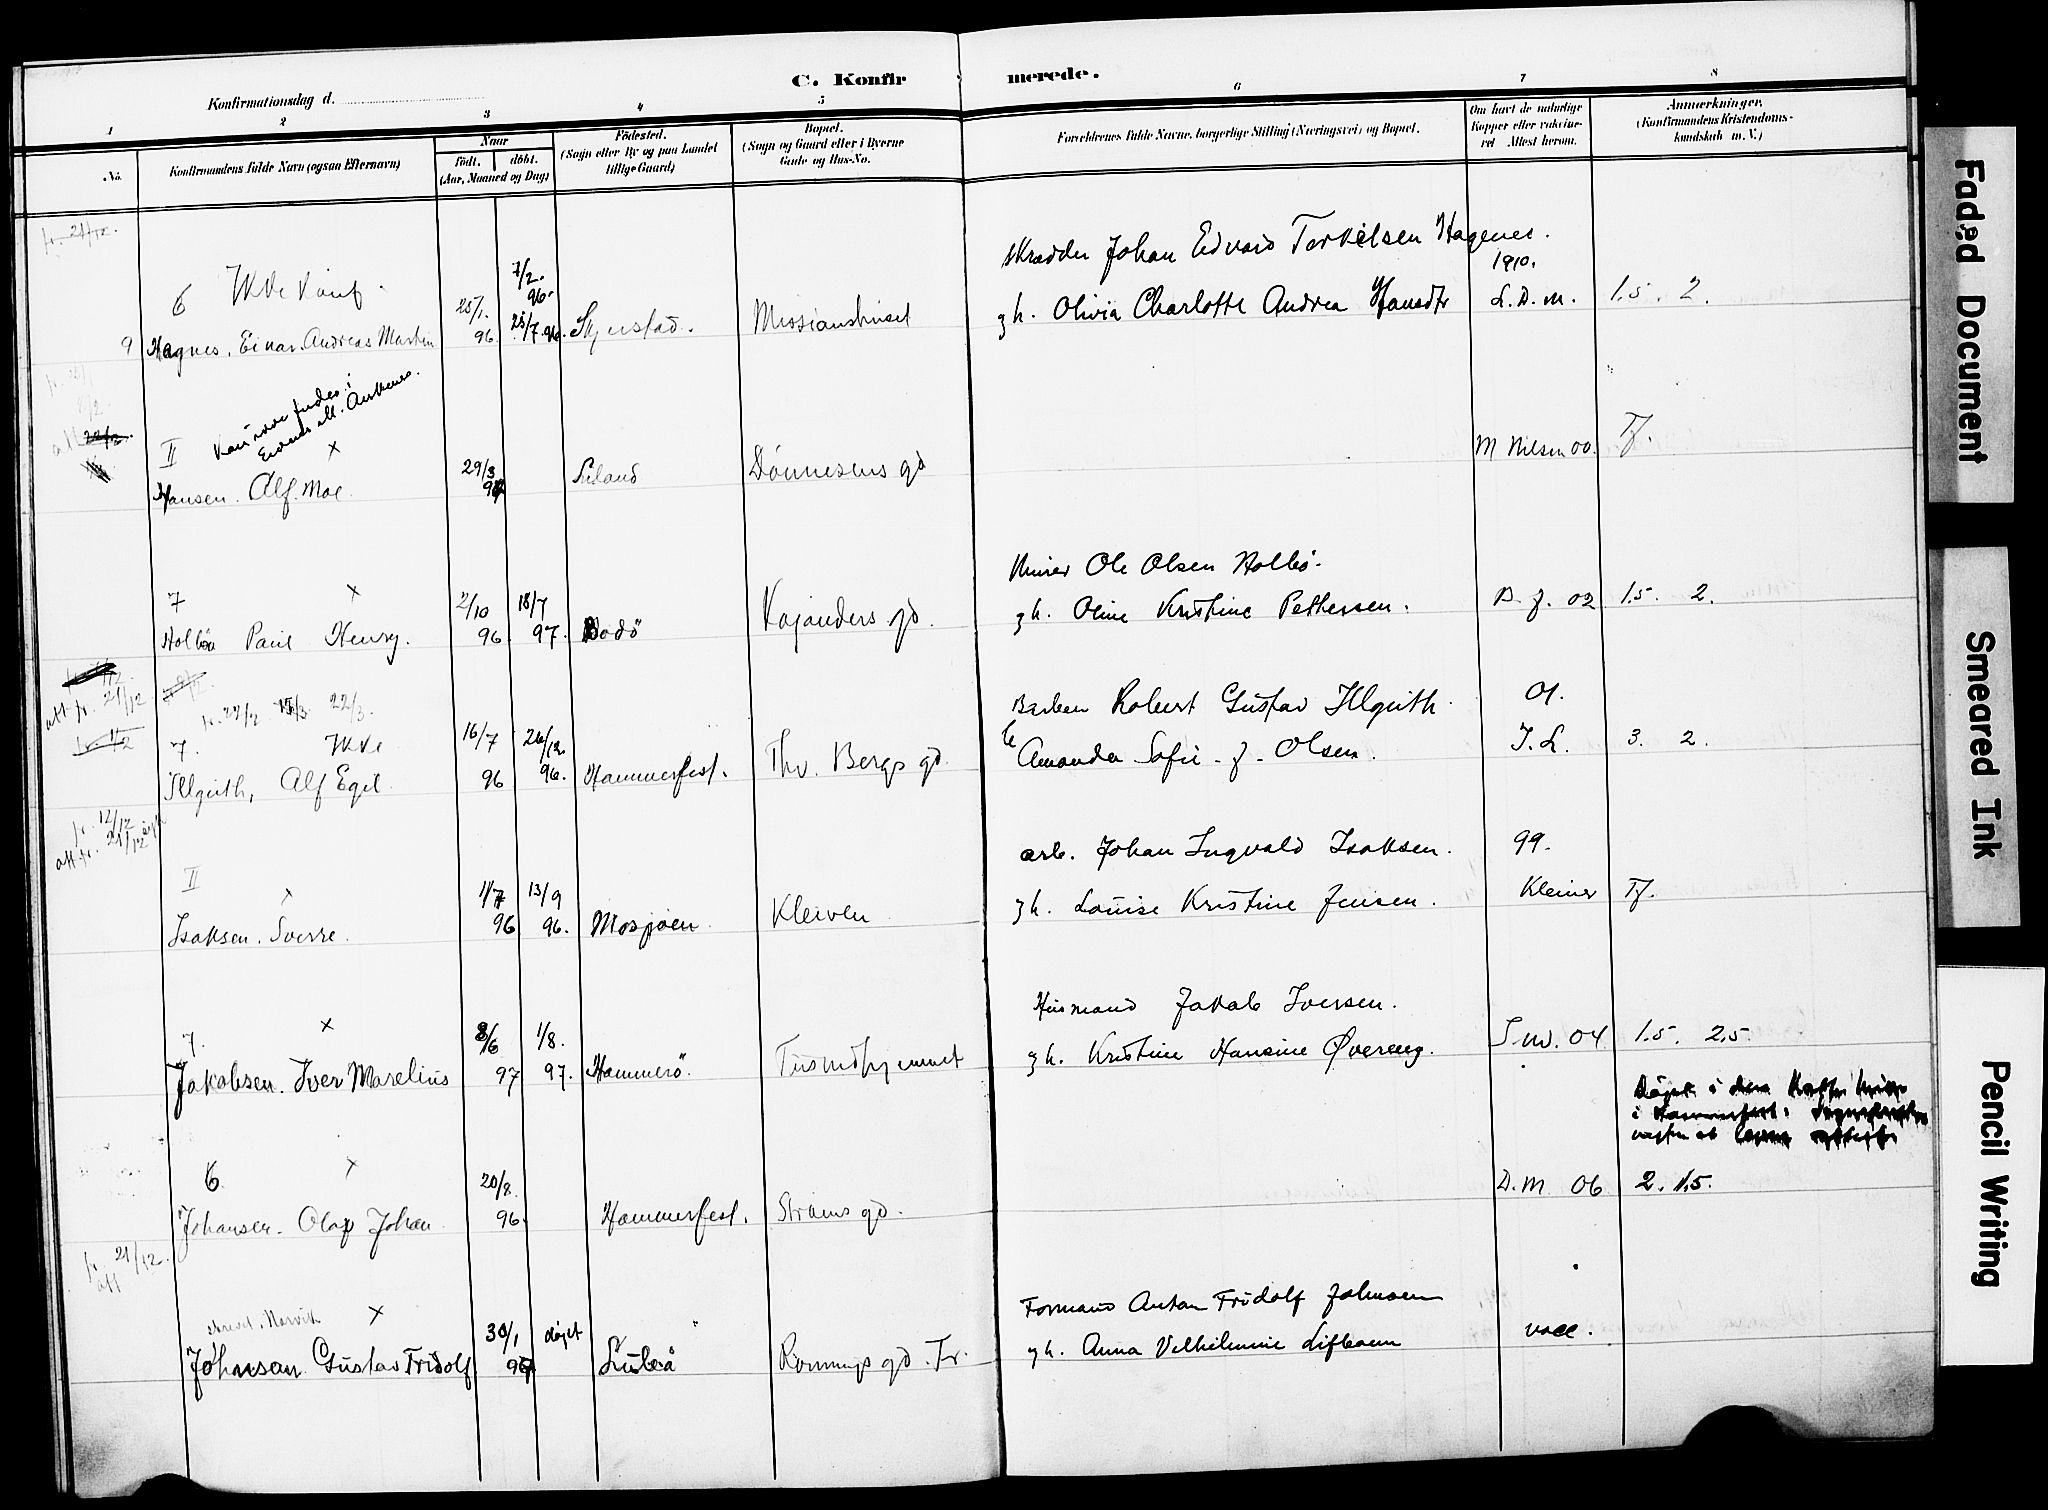 C. Konfirmerede.
Konfirmationsdag d.
1 2 3 4 5 6 7 8
No.
Konfirmandens fulde Navn (ogsaa Efternavn)
Naar
födt. döbt.
(Aar, Maaned og Dag)
Födested.
(Sogn eller By og paa Landet
tillige Gaard)
Bopæl.
(Sogn og Gaard eller i Byerne
Gade og Hus-No.
Forældrenes fulde Navne, borgerlige Stilling (Næringsvei) og Bopæl.
Om havt de naturlige
Kopper eller vaksine-
ret Attest herom.
Anmærkninger,
(Konfirmandens Kristendoms-
kundskab m.V.)
fr. 21/12.
6 Ikke konf.
9 Hagnes, Einar Andreas Martin
25/1. 96
7/2. 96.
25/7 96.
Skjerstad.
Missionshuset
Skrædder Johan Edvard Terkelsen Hagenes.
g h. Olivia Charlotte Andrea Hansdtr
1910.
L. D. M.
1,5. 2.
II
Kan ikke findes i
×
Hansen. Alf. Moe.
29/3 97
Seland
Dönnesens gd
M Nilsen 00.
Tf.
7 ×
Holböe Paul Henry.
2/10 96
18/7 97.
Bodö
Kajanders gd.
Miner Ole Olsen Holbö.
g h. Oline Kristine Pettersen.
B. J. 02
1.5. 2.
att fr. 21/12
fr. 22/2 15/3 22/3.
7. Ikke
Illguth, Alf Egil
16/7 96
26/12 96.
Hammerfest.
Thv. Bergs gd
Barber Robert Gustav Illguth.
Amanda Sofie f. Olsen.
01.
I. L.
3. 2.
fr. 12/12
att. fr. 21/12
II ×
Isaksen. Sverre.
1/7 96
13/9 96.
Mosjöen
Kleiven
arb. Johan Ingvald Isaksen.
g h. Louise Kristine Jensen.
99.
Kleiner
Tf.
7. ×
Jakobsen. Iver Marelius
8/6 97
1/8. 97.
Hammerö.
Tusindhjemmet
Husmand Jakob Iversen.
g h. Kristine Hansine Øvereng.
S.W. 04
1.5. 2,5.
6 ×
Johansen. Olaf Johan.
20/8. 96.
Hammerfest.
Ströms gd.
D. M 06
2. 1.5.
fr. 21/12.
att
skrevet. Narvik ×
Johnsan Gustav Fridolf
30/1 97
döpt
Luleå
Rönnings gd. Fr.
Formand Anton Fridolf Johnsen
g h. Anna Vilhelmine Lifbom
vacc.
Faded Document
Smeared Ink
Pencil Writing